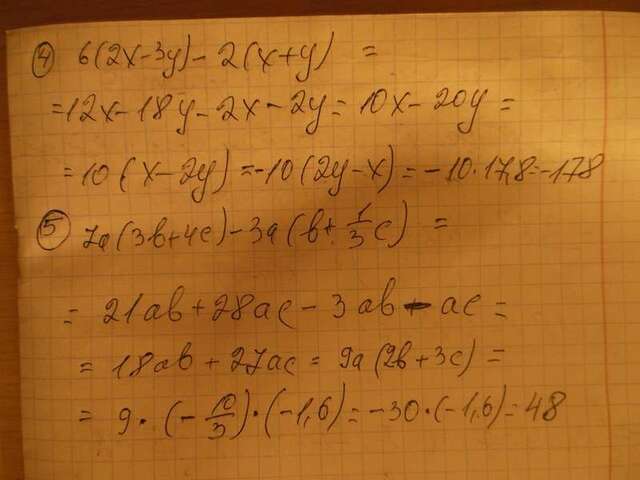 ④ 6(2x-3y)-2(x+y) =
=12x-18y-2x-2y=10x-20y=
=10(x-2y)=-10(2y-x)=-10·17,8=-178
⑤ 7a(3b+4c)-3a(b+1/3c) =
= 21ab+28ac-3ab-ac=
= 18ab+27ac=9a(2b+3c)=
= 9·(-10/3)·(-1,6)=-30·(-1,6)=48